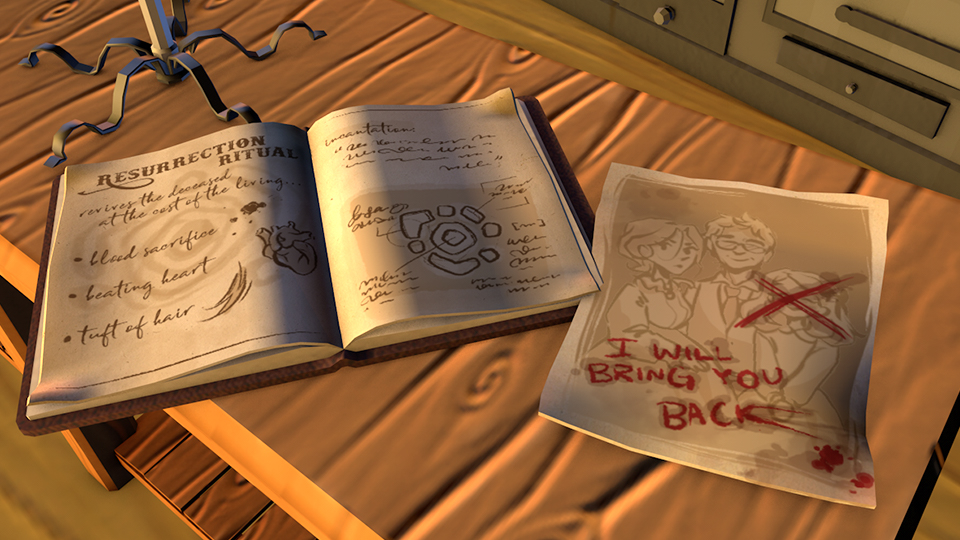 RESURRECTION
RITUAL
revives the deceased
at the cost of the living...
• blood sacrifice
• beating heart
• tuft of hair
incantation:
I WILL
BRING YOU
BACK